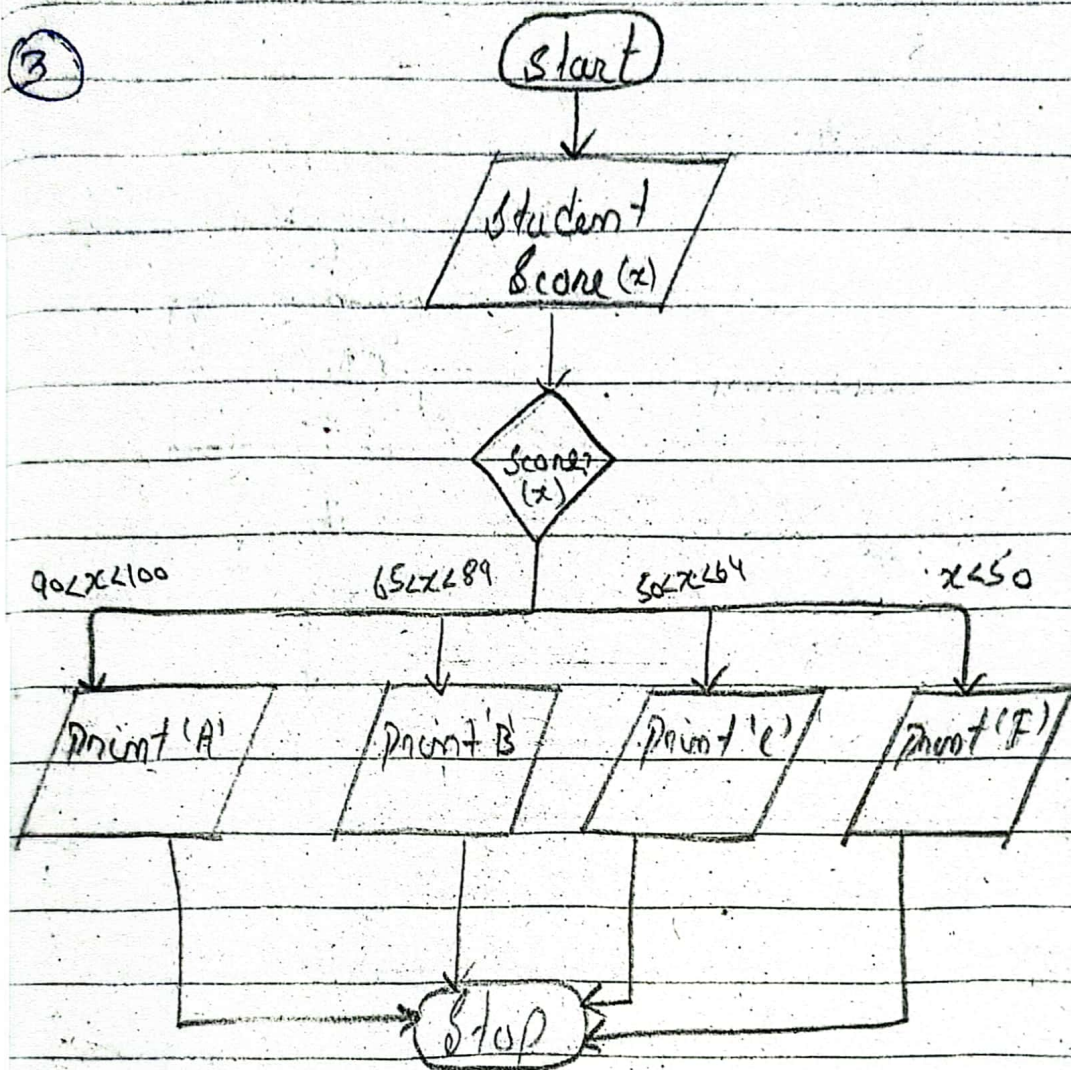 3
Start
Student
Score (x)
Score?
(x)
90<x<100
65<x<89
50<x<64
x<50
Print 'A'
Print 'B'
Print 'C'
Print 'F'
Stop